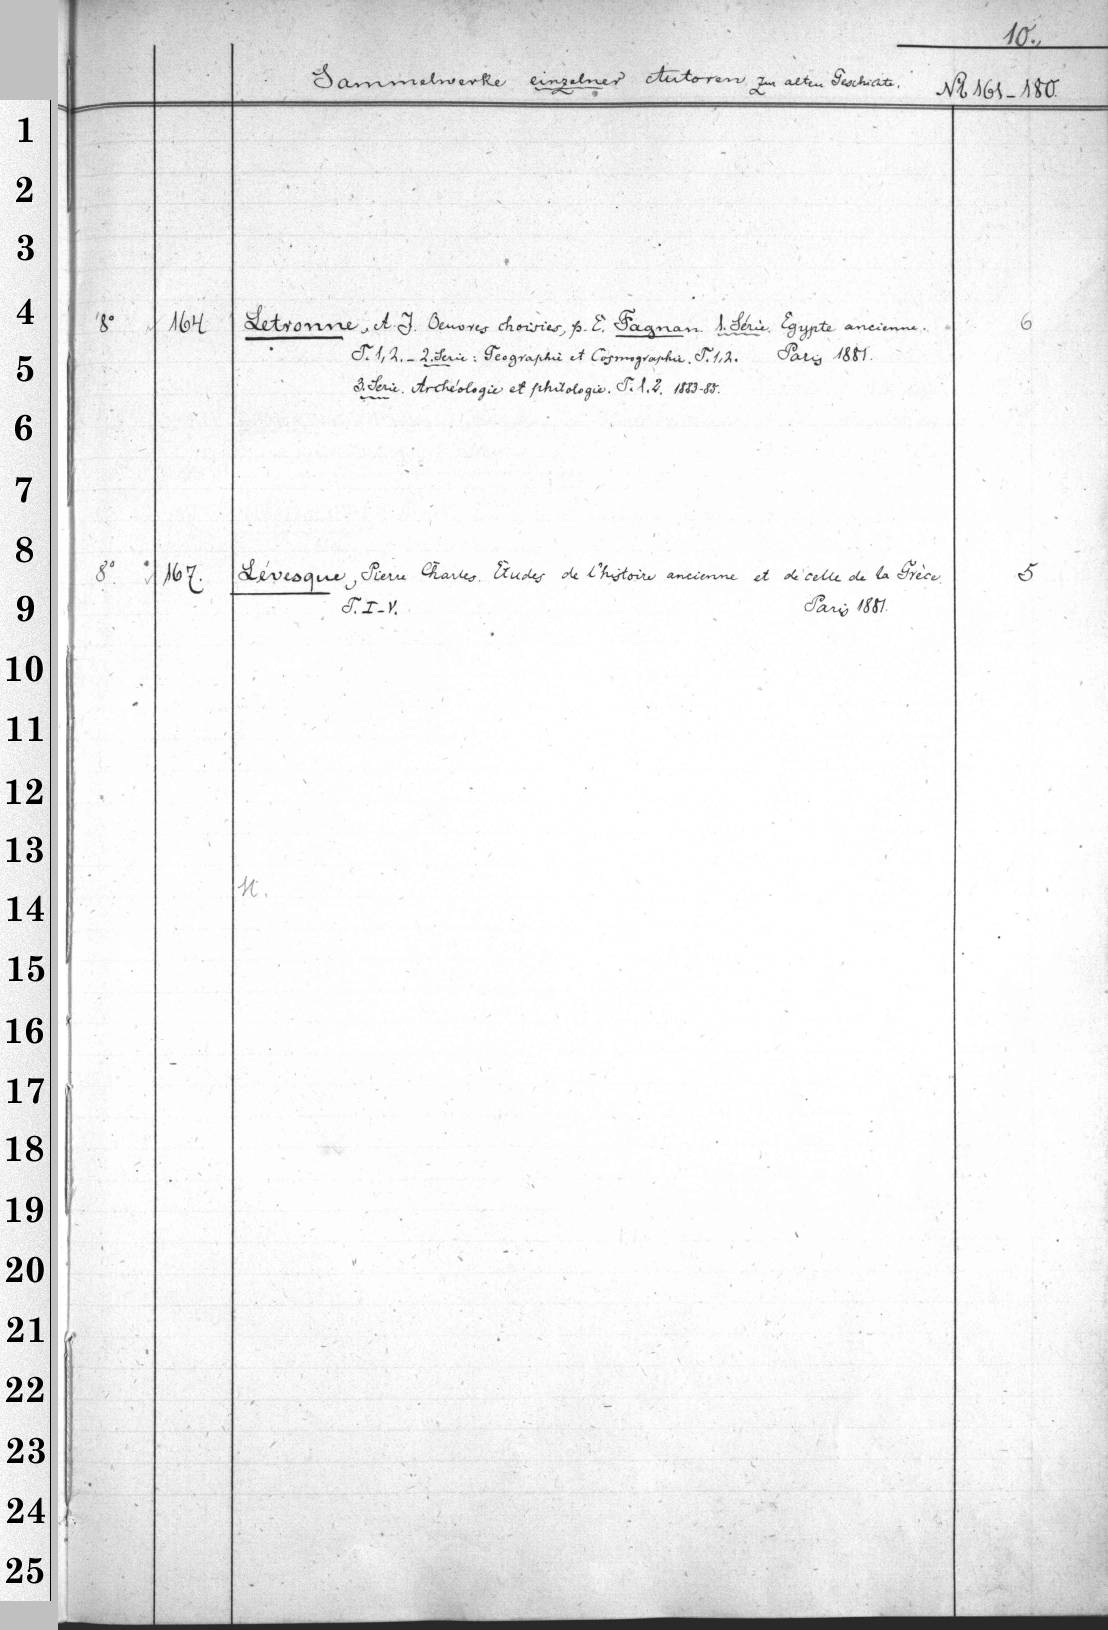 10.
Sammelwerke einzelner Autoren zur alten Geschichte. No 161-180.
1
2
3
4
8° 164 Letronne, A. J. Oeuvres choisies, p. E. Fagnan. 1. Série. Egypte ancienne. 6
T. 1, 2. - 2. Serie: Geographie et Cosmographie. T. 1. 2. Paris 1881.
5
3. Serie. Archéologie et philologie. T. 1. 2. 1883-85.
6
7
8
8° 167. Lévesque, Pierre Charles. Etudes de l'histoire ancienne et de celle de la Grèce. 5
9
T. I-V. Paris 1881.
10
11
12
13
14
15
16
17
18
19
20
21
22
23
24
25